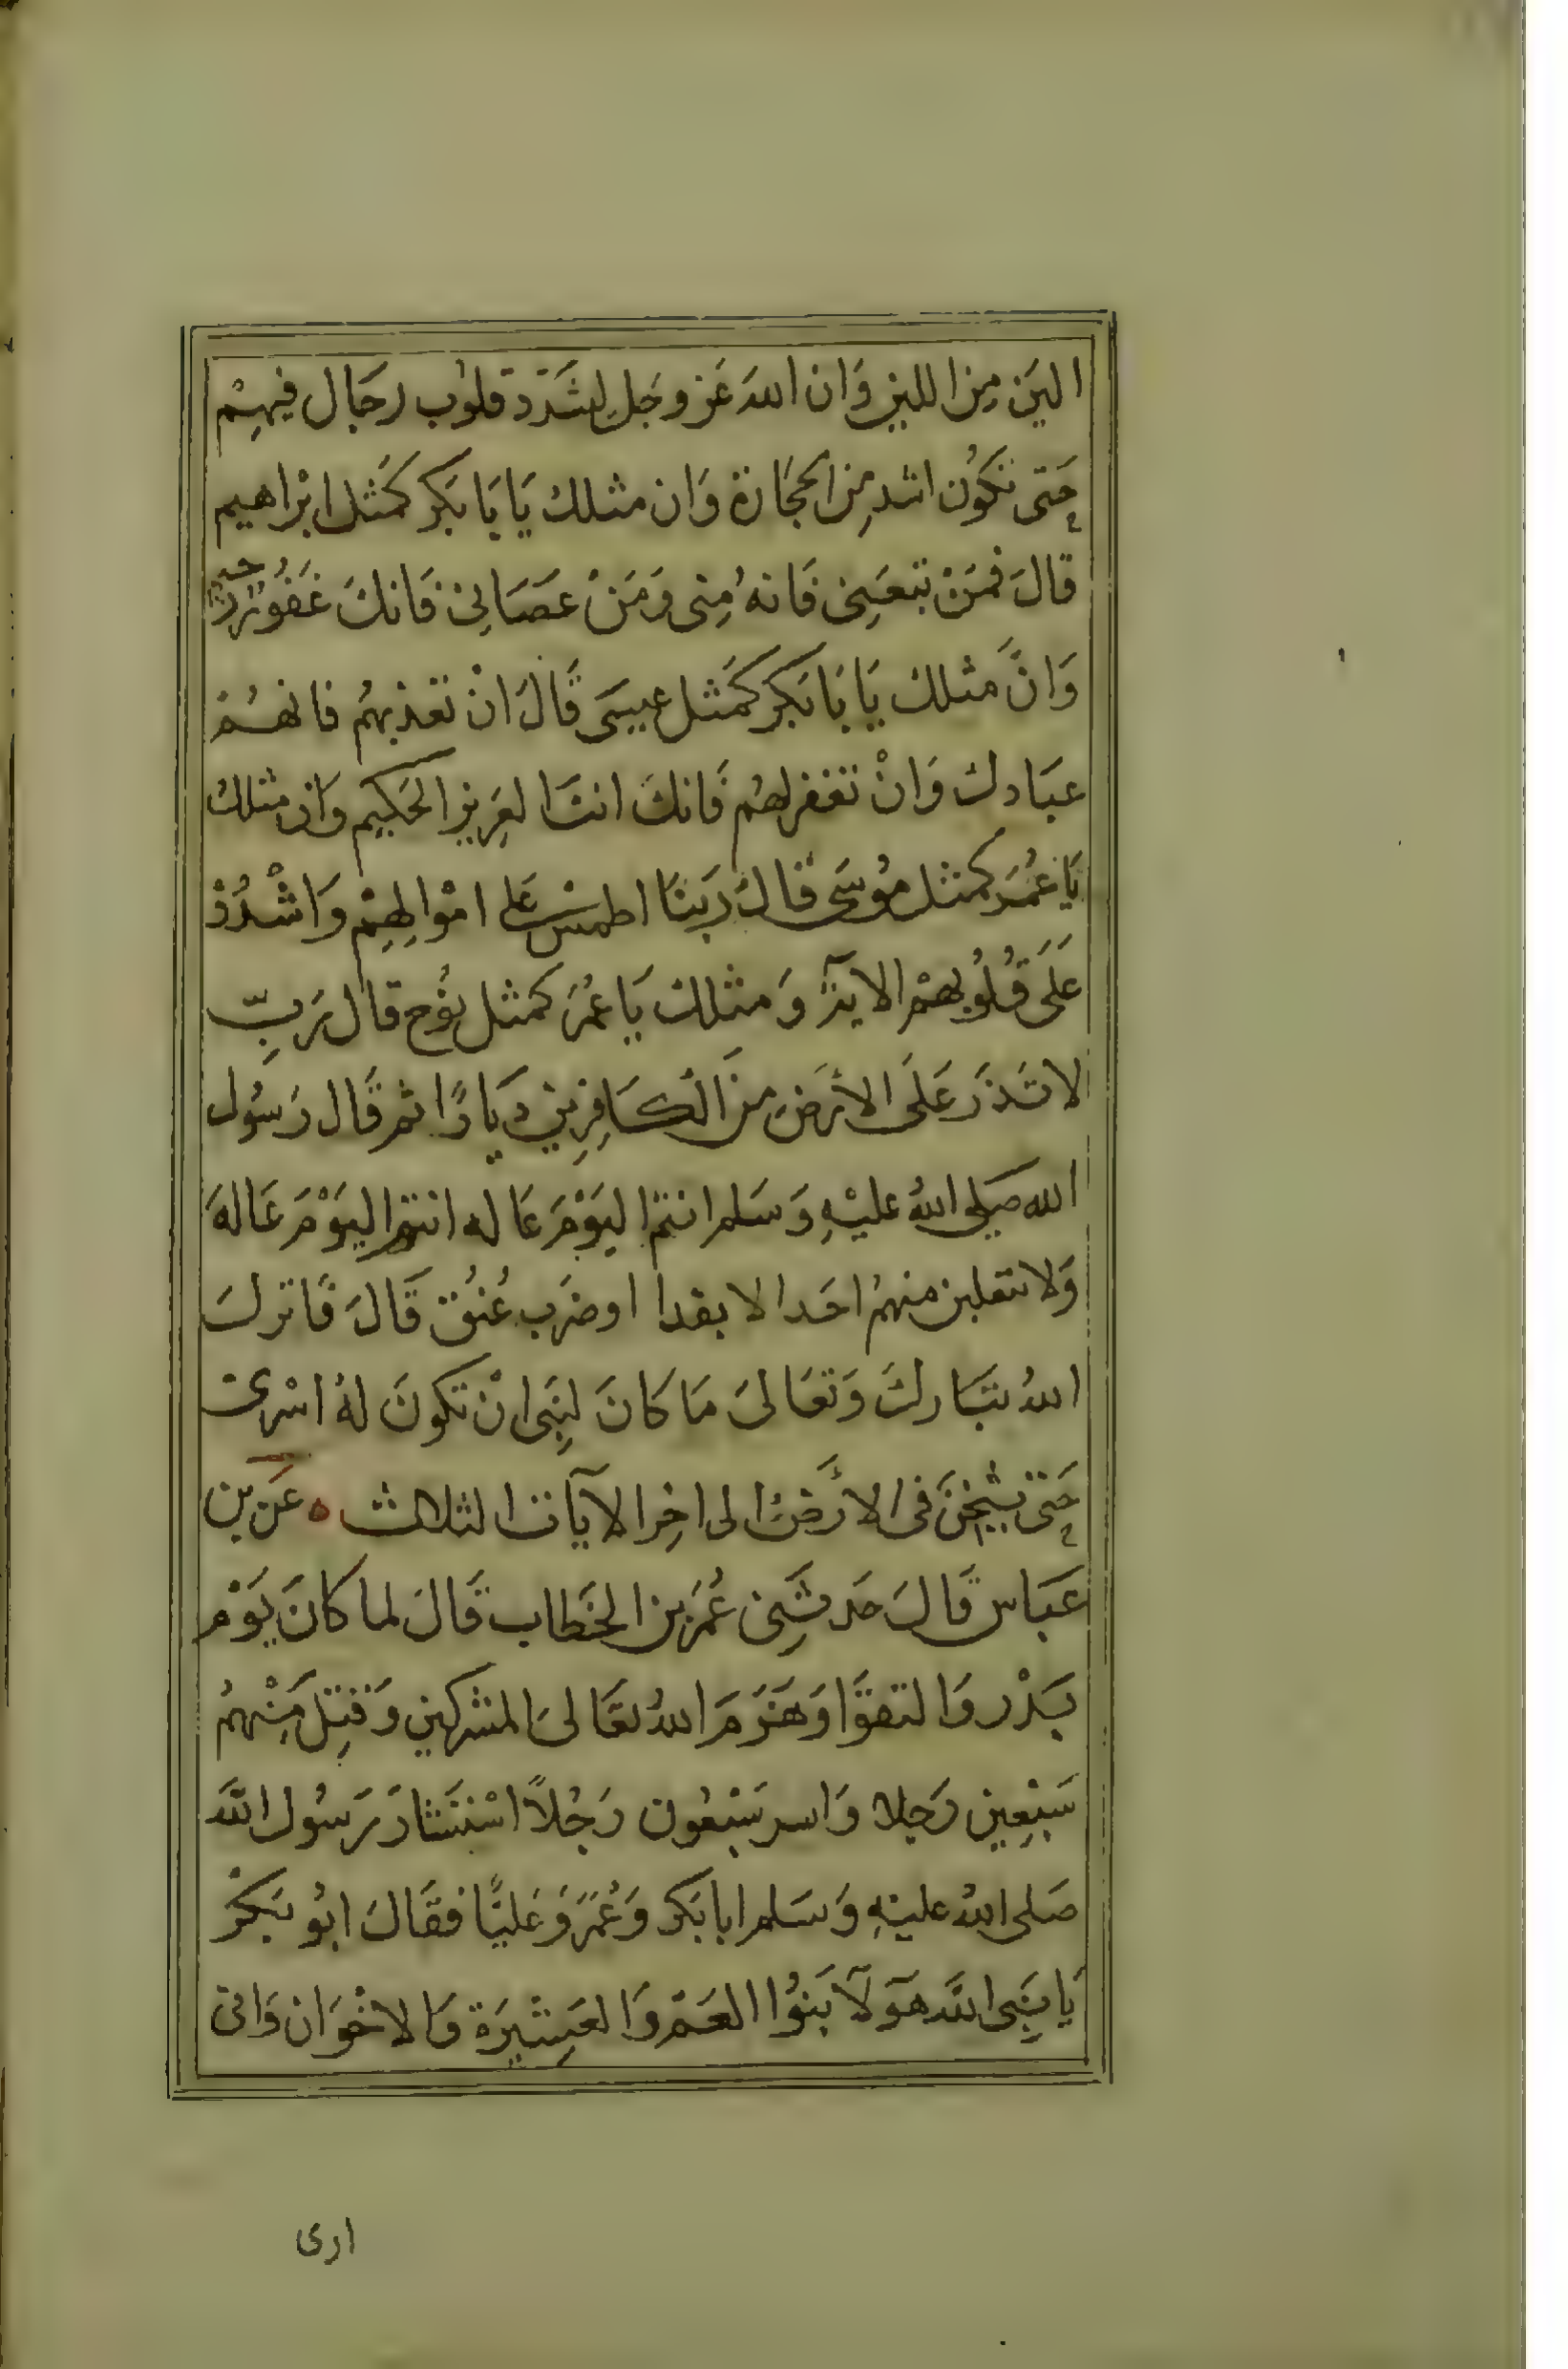 الين من اللين وَان اللهَ عَز وجَل ليشدّد قلوُب رجَال فيهِمْ
حَتى تكوُن اشد مِن الحجَارة وَان مثلك يَا بَا بَكر كمَثل ابْراهيم
قالَ فمَنْ تبعَنِى فَانهُ مِنى وَمَنْ عصَانِى فَانكَ غَفوُرٌ رحيم
وَانَّ مثلك يَا بَا بَكر كمَثل عيسَى قَالَ انْ تعذبهُم فانهُم
عبَادك وَانْ تغفر لهُم فَانكَ انتَ العَزِيز الحَكيم وَان مثلك
يَا عُمَر كمثل موُسَى قالَ رَبنَا اطمسْ عَلى امْوالِهِمْ وَاشْدُدْ
عَلَى قُلُوبِهمْ الآية وَمثلك يَا عُمرَ كمثل نوُح قال رَبِّ
لا تَذرَ عَلَى الأرَضِ مِنَ الكَافِرِينَ دَيارًا ثم قَال رَسوُل
الله صَلى اللهُ عليْهِ وَسَلم انتم اليَوْمَ عَاله انتم اليَوْمَ عَالهَ
وَلا تنقلبن منهمُ احَدا الا بفدا اوضَرب عُنُق قَالَ فَانزلَ
اللهُ تبَاركَ وَتعَالىَ مَا كَانَ لِنَبى انْ تكونَ لهُ اسْرىَ
حَتىَ يثخِنَ فى الأرَضِ الى اخِر الآيَات الثلاث ه عَن بن
عَبَاس قَالَ حَدثَنِى عُمَر بن الخَطاب قَالَ لما كانَ يَوْم
بَدْر وَالتقوَا وَهَزمَ اللهُ تعَالىَ المشركين وَقتِل مِنْهمُ
سَبْعِين رَجلا وَاسر سَبْعُون رَجُلاً اسْتشَارَ رَسُول اللَّه
صَلى اللهُ عليْهِ وَسَلم ابا بَكر وَعُمَرَ وَعَليًّا فقَالَ ابُو بَكْر
يَا نَبِى اللَّه هَؤلآ بَنوُا العَمّ وَالعَشِيْرَة وَالاخْوَان وَانى
ارى